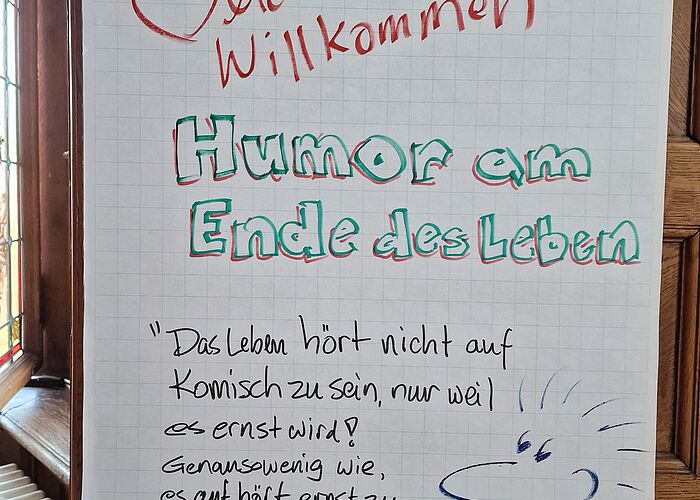 Willkommen
Humor am
Ende des Leben
"Das Leben hört nicht auf
Komisch zu sein, nur weil
es ernst wird!
Genausowenig wie,
es aufhört ernst zu